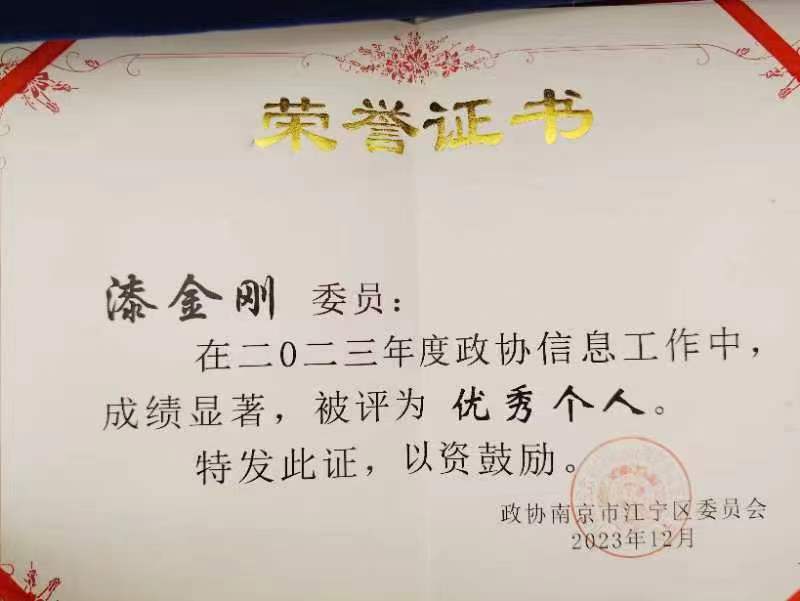 荣誉证书
漆金刚 委员：
在二０二三年度政协信息工作中，
成绩显著，被评为 优秀个人。
特发此证，以资鼓励。
政协南京市江宁区委员会
2023年12月